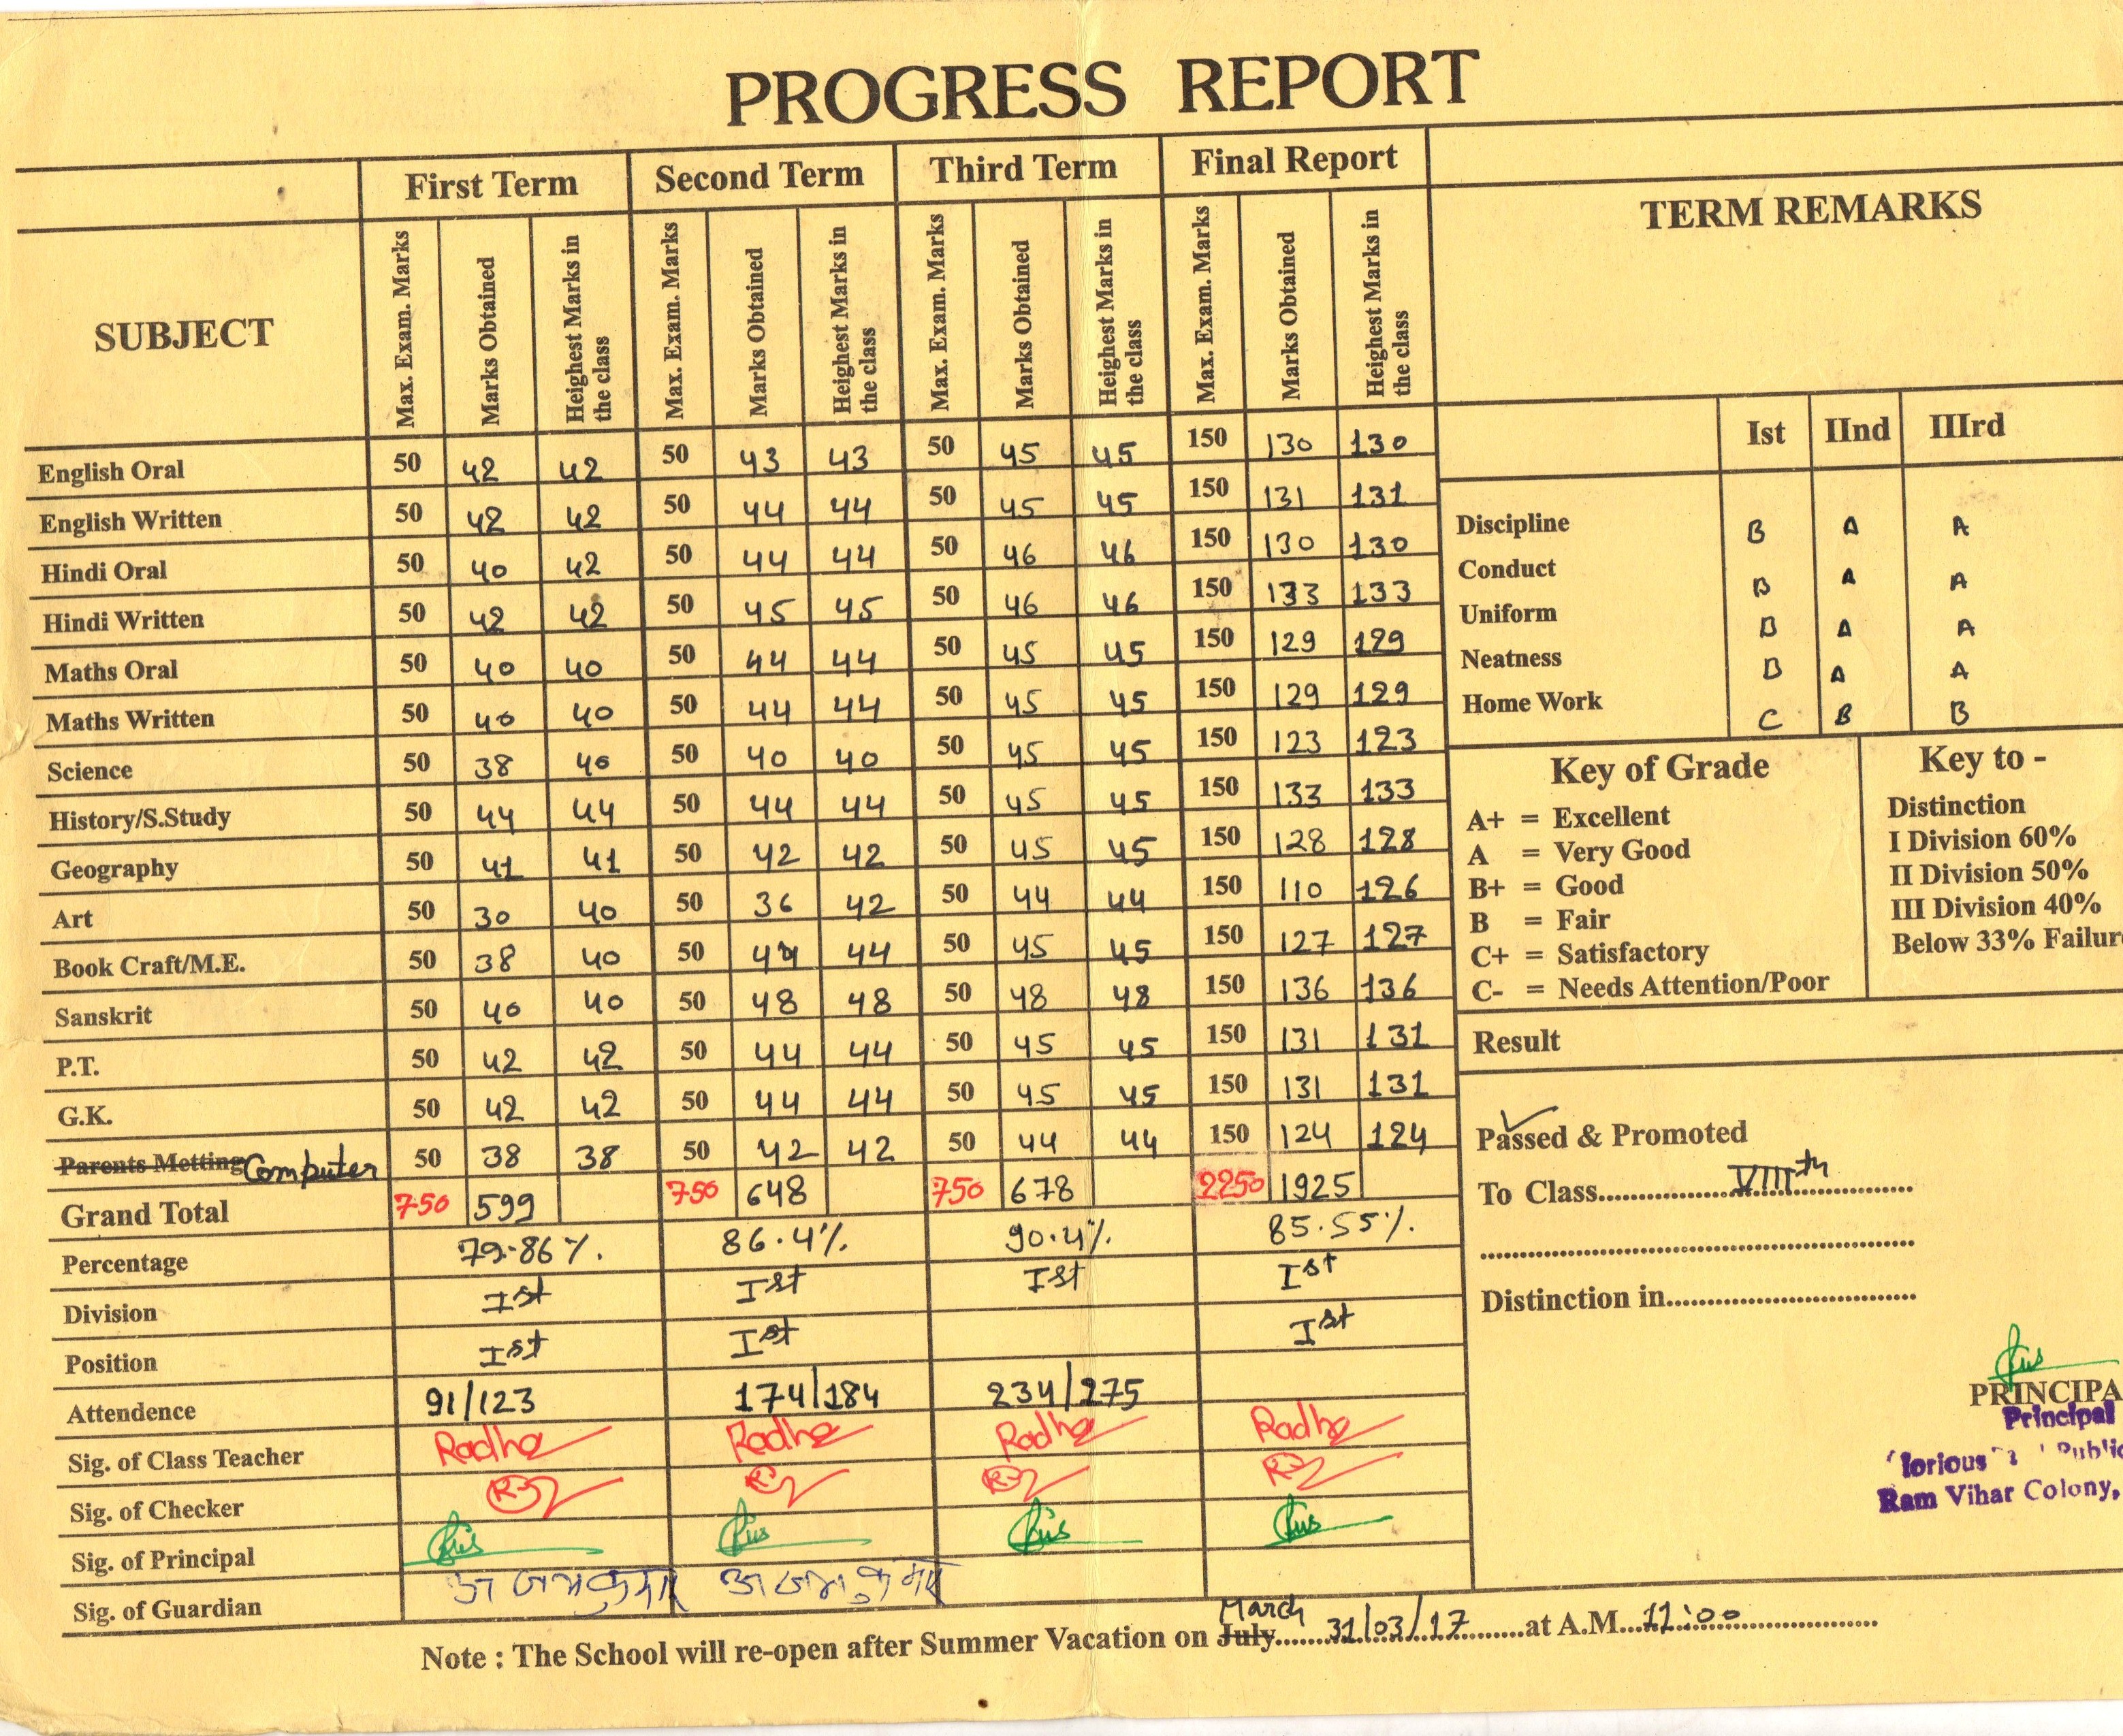 PROGRESS REPORT
First Term Second Term Third Term Final Report
TERM REMARKS
SUBJECT Max. Exam. Marks Marks Obtained Heighest Marks in the class Max. Exam. Marks Marks Obtained Heighest Marks in the class Max. Exam. Marks Marks Obtained Heighest Marks in the class Max. Exam. Marks Marks Obtained Heighest Marks in the class
English Oral 50 42 42 50 43 43 50 45 45 150 130 130
English Written 50 42 42 50 44 44 50 45 45 150 131 131
Hindi Oral 50 40 42 50 44 44 50 46 46 150 130 130
Hindi Written 50 42 42 50 45 45 50 46 46 150 133 133
Maths Oral 50 40 40 50 44 44 50 45 45 150 129 129
Maths Written 50 40 40 50 44 44 50 45 45 150 129 129
Science 50 38 40 50 40 40 50 45 45 150 123 123
History/S.Study 50 44 44 50 44 44 50 45 45 150 133 133
Geography 50 41 41 50 42 42 50 45 45 150 128 128
Art 50 30 40 50 36 42 50 44 44 150 110 126
Book Craft/M.E. 50 38 40 50 44 44 50 45 45 150 127 127
Sanskrit 50 40 40 50 48 48 50 48 48 150 136 136
P.T. 50 42 42 50 44 44 50 45 45 150 131 131
G.K. 50 42 42 50 44 44 50 45 45 150 131 131
Parents Metting Computer 50 38 38 50 42 42 50 44 44 150 124 124
Grand Total 750 599 750 648 750 678 2250 1925
Percentage 79.86% 86.4% 90.4% 85.55%
Division Ist Ist Ist Ist
Position Ist Ist Ist
Attendence 91/123 174/184 234/275
Sig. of Class Teacher Radha Radha Radha Radha
Sig. of Checker
Sig. of Principal
Sig. of Guardian
Ist IInd IIIrd
Discipline B A A
Conduct B A A
Uniform B A A
Neatness B A A
Home Work C B B
Key of Grade
A+ = Excellent
A = Very Good
B+ = Good
B = Fair
C+ = Satisfactory
C- = Needs Attention/Poor
Key to -
Distinction
I Division 60%
II Division 50%
III Division 40%
Below 33%
Result
Passed & Promoted
To Class VIIIth
Distinction in
Principal
Ram Vihar Colony,
March
Note : The School will re-open after Summer Vacation on July 31/03/17 at A.M. 11:00